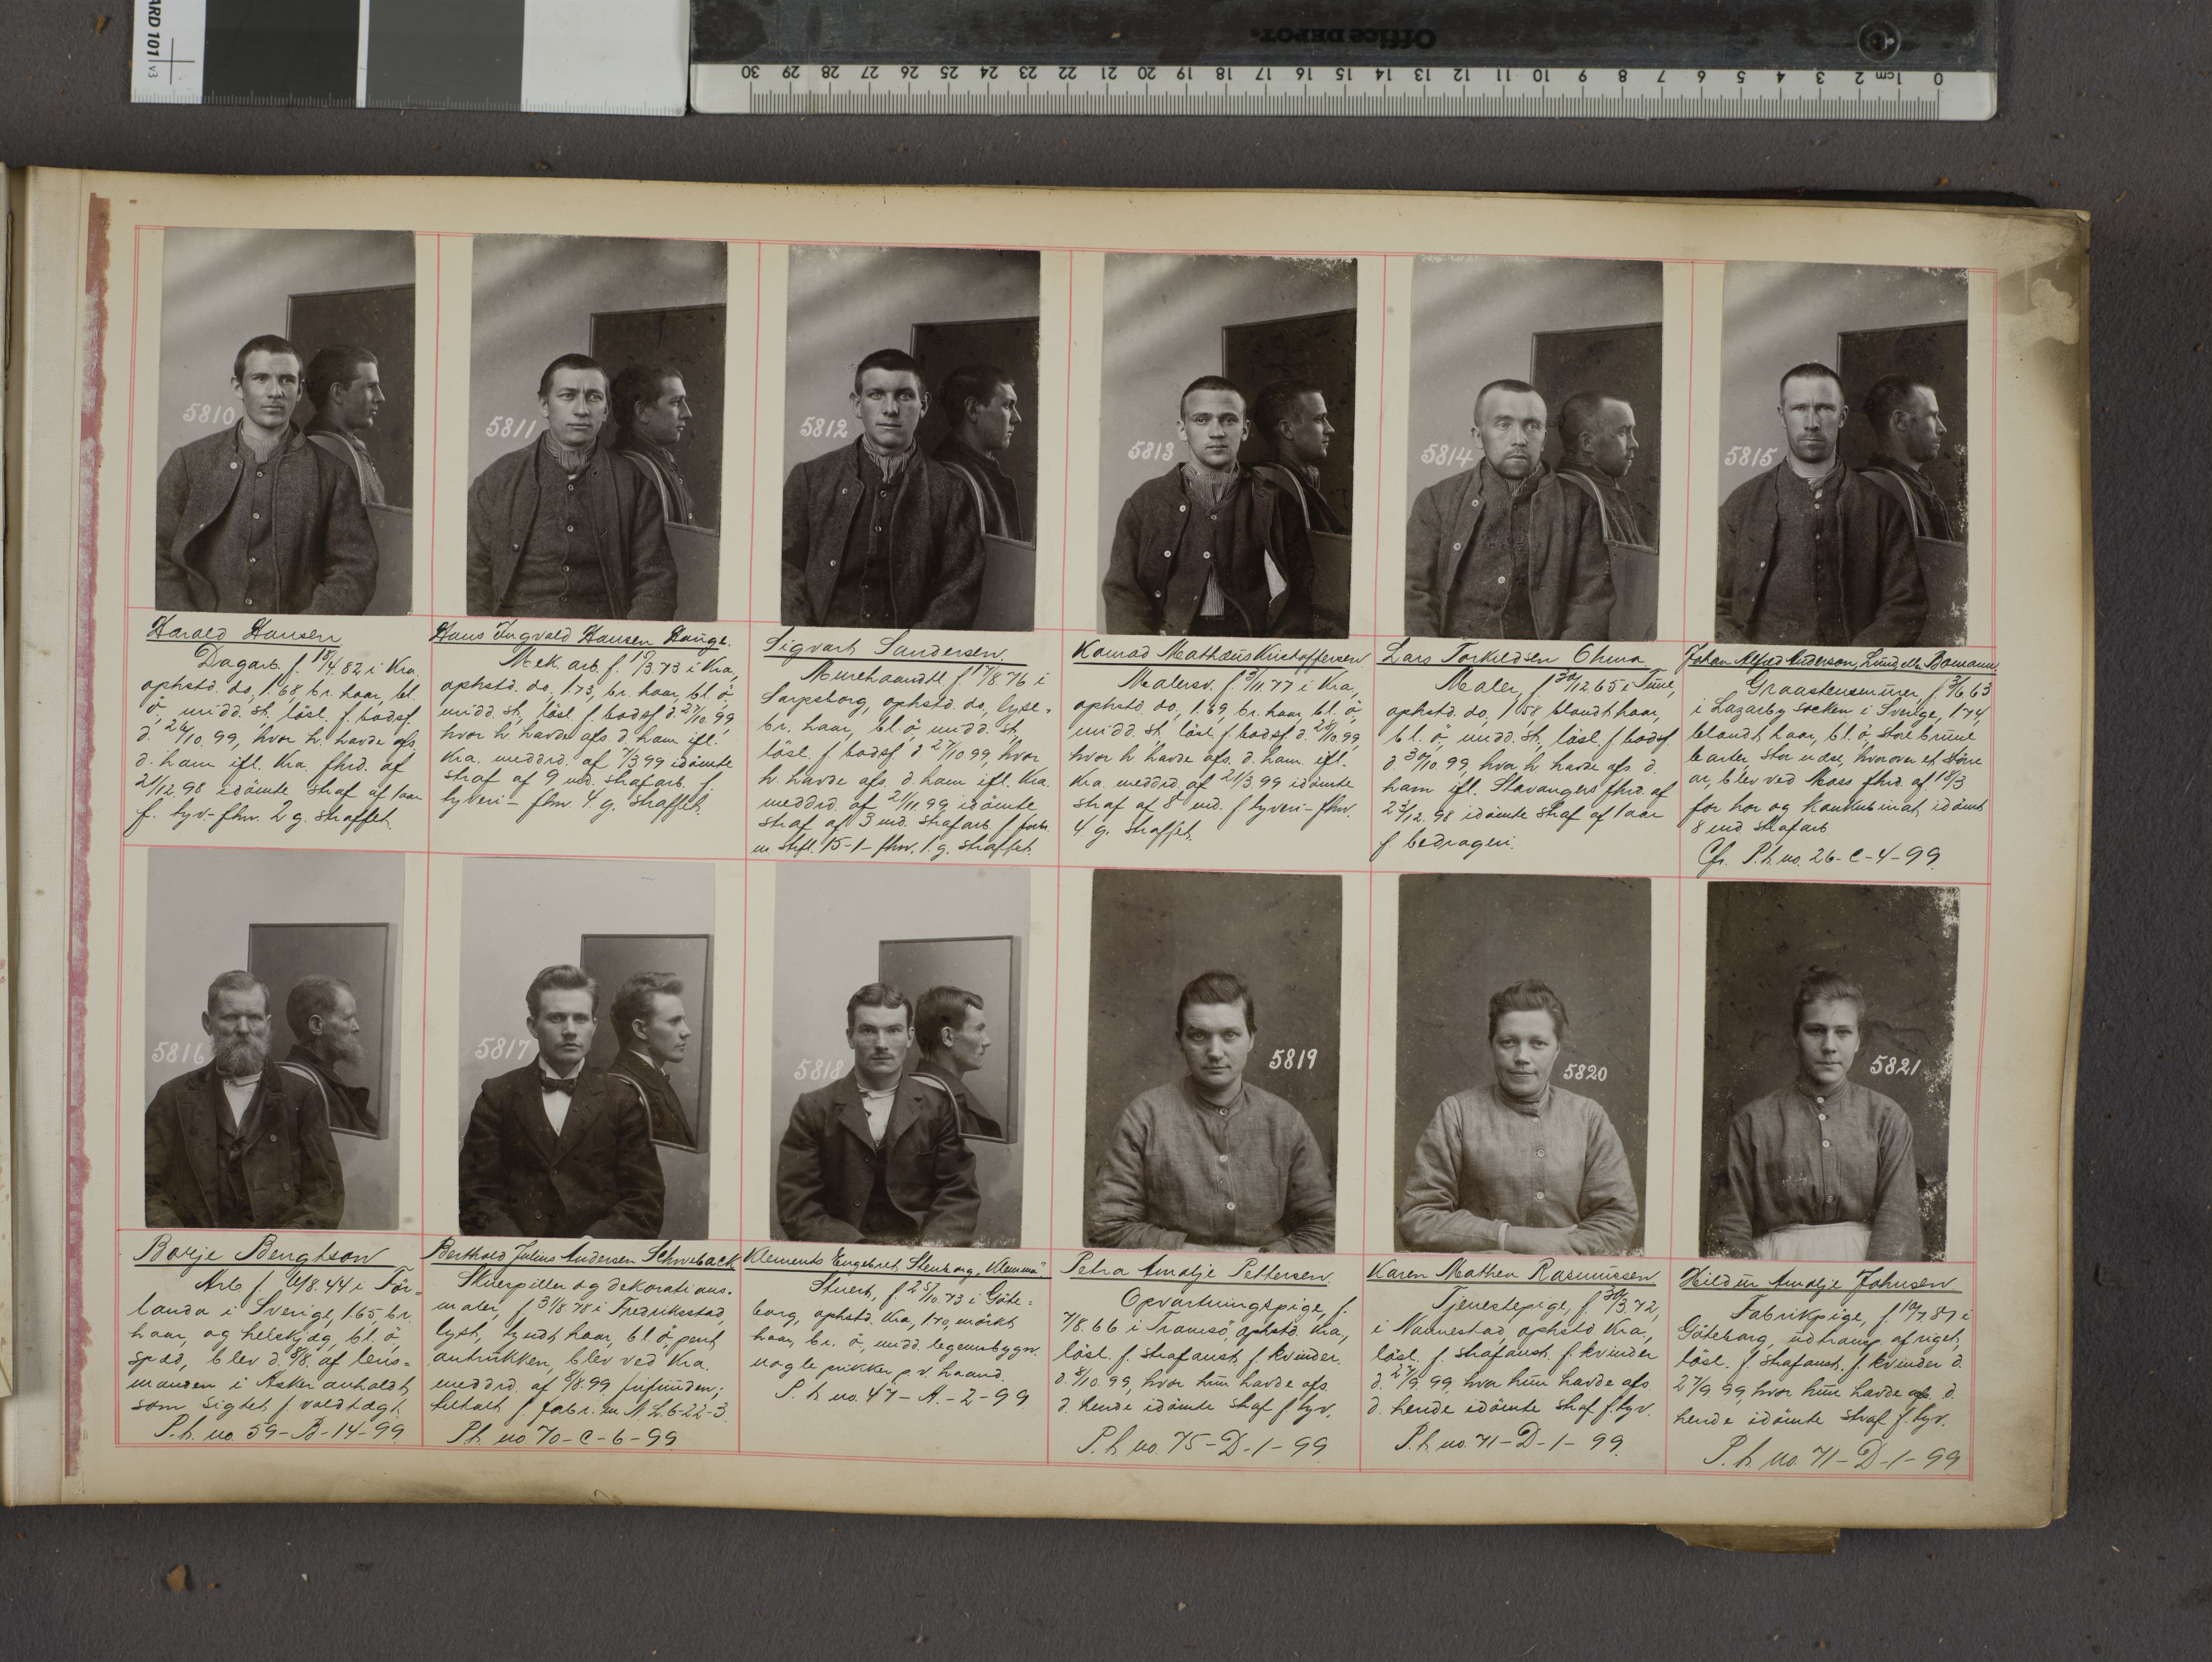 ARD 101 v3
Office DEPOT
30 29 28 27 26 25 24 23 22 21 20 19 18 17 16 15 14 13 12 11 10 9 8 7 6 5 4 3 2 1cm 0
5810
5811
5812
5813
5814
5815
Harald Hansen
Dagarb. f. 18/4.82 i Kra.
ophstd. do, 1.68, br. haar, bl.
ö, midd. st. lösl. f. bodsf.
d. 24/10.99, hvor h. havde afs.
d. ham ifl. Kra. fhrd. af
2/12.98 idömte straf af 1 aar
f. tyv.- fhv. 2 g. straffet.
Hans Ingvald Hansen Hauge.
Mek. arb. f. 15/3.73 i Kra,
ophstd. do, 1.73, br. haar, bl. ö.
midd. st., lösl. f. bodsf. d. 27/10.99,
hvor h. havde afs. d. ham ifl.
Kra. meddrd. af 7/3 99 idömte
straf af 9 md. strafarb. f.
tyveri - fhv. 4. g. straffet.
Sigvart Sandersen.
Murehaandtl. f. 17/8.76 i
Sarpsborg, ophstd. do, lyse-
br. haar, bl. ö, midd. st,
lösl. f. bodsf. d. 27/10 99, hvor
h. havde afs. d. ham ifl. Kra.
meddrd. af 2/11 99 idömte
straf af 3 md. strafarb. f. forbr.
m. strfl. 15-1- fhv. 1. g. straffet.
Konrad Mathæus Kristoffersen
Malersv. f. 3/11.77 i Kra,
ophstd. do, 1.69, br. haar, bl. ö,
midd. st. lösl. f. bodsf. d. 28/10.99,
hvor h. havde afs. d. ham ifl.
Kra. meddrd. af 21/3.99 idömte
straf af 8 md. f. tyveri - fhv.
4 g. straffet.
Lars Torkildsen
Maler, f. 30/12 65 i
ophstd. do, 1.58 blondt haar,
bl. ö, midd. st., lösl. f. bodsf.
d. 30/10.99, hvor h. havde afs. d.
ham ifl. Stavangers fhrd. af
23/12.98 idömte straf af 1 aar
f. bedrageri.
Johan Alfred Anderson, Lund, ell.
Graastensmurer, f. 3/6 63
i Lazarby socken i Sverige, 1.74,
blondt haar, bl. ö, store brune
barter, stor næse, hvorover et större
ar, blev ved Moss fhrd. af 18/3
for hor og Konkubinat idömt
8 md. strafarb.
Cfr. P.h. no. 26-C-4-99.
5816
5817
5818
5819
5820
5821
Borje Benghson
Arb. f. 16/8.44 i För-
landa i Sverige, 1.65, br.
haar, og helskjæg, bl. ö,
spæd, blev d. 8/8. af lens-
manden i Asker anholdt
som sigtet f. voldtægt.
P.h. no. 59-B-14-99.
Berthold Julius Andersen Schiveback
Skuespiller og dekorations-
maler, f. 31/8.78 i Fredriksstad,
lyst, tyndt haar, bl. ö, pent
antrukken, blev ved Kra.
meddrd. af 8/8.99 frifunden;
tiltalt f. forbr. m. N.L. 6-22-3.
P.h. no 70-C-6-99
Klements Engebret Stenborg,
Stuert, f. 25/10.73 i Göte-
borg, ophstd. Kra, 1.70, mörkt
haar, br. ö., midd. legemsbygn.
nogle prikker p. v. haand.
P.h. no. 47-A-2-99
Petra Amalje Pettersen.
Opvartningspige, f.
7/8.66 i Tromsö, ophstd. Kra,
lösl. f. strafanst. f. kvinder.
d. 8/10.99, hvor hun havde afs.
d. hende idömte straf f. tyv.
P.h. no. 75-D-1-99
Karen Mathea Rasmussen
Tjenestepige, f. 30/3.72,
i Nannestad, ophstd. Kra.,
lösl. f. strafanst. f. kvinder
d. 27/9.99, hvor hun havde afs.
d. hende idömte straf f. tyv.
P.h. no. 71-D-1-99.
Hildur Amalje Johnsen.
Fabrikpige, f. 10/7.81 i
Göteborg, af riget,
lösl. f. strafanst. f. kvinder d.
27/9 99, hvor hun havde afs. d.
hende idömte straf f. tyv.
P.h. no. 71-D-1-99